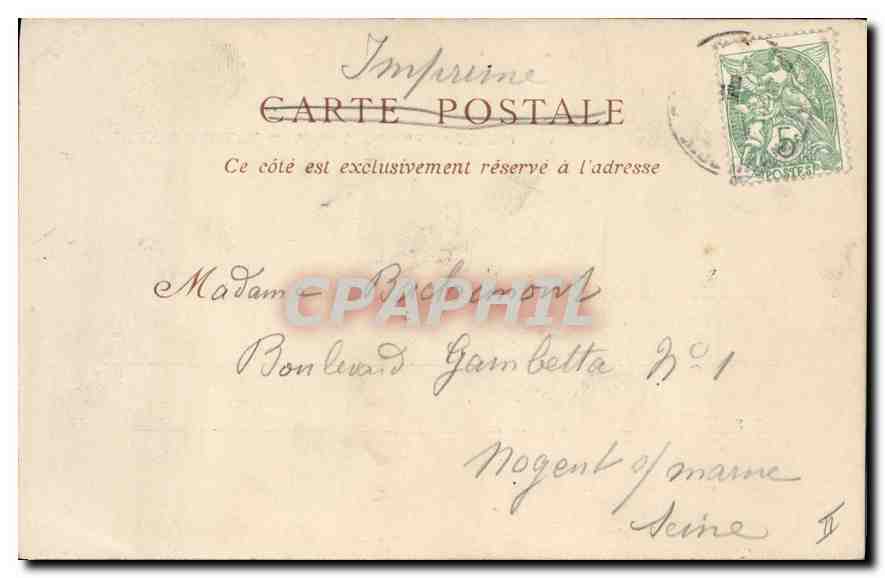 Imprimé
CARTE POSTALE
Ce côté est exclusivement réservé à l'adresse
5
POSTES
Madame Bochimont
CPAPHIL
Boulevard Gambetta No 1
Nogent s/ marne
Seine
II